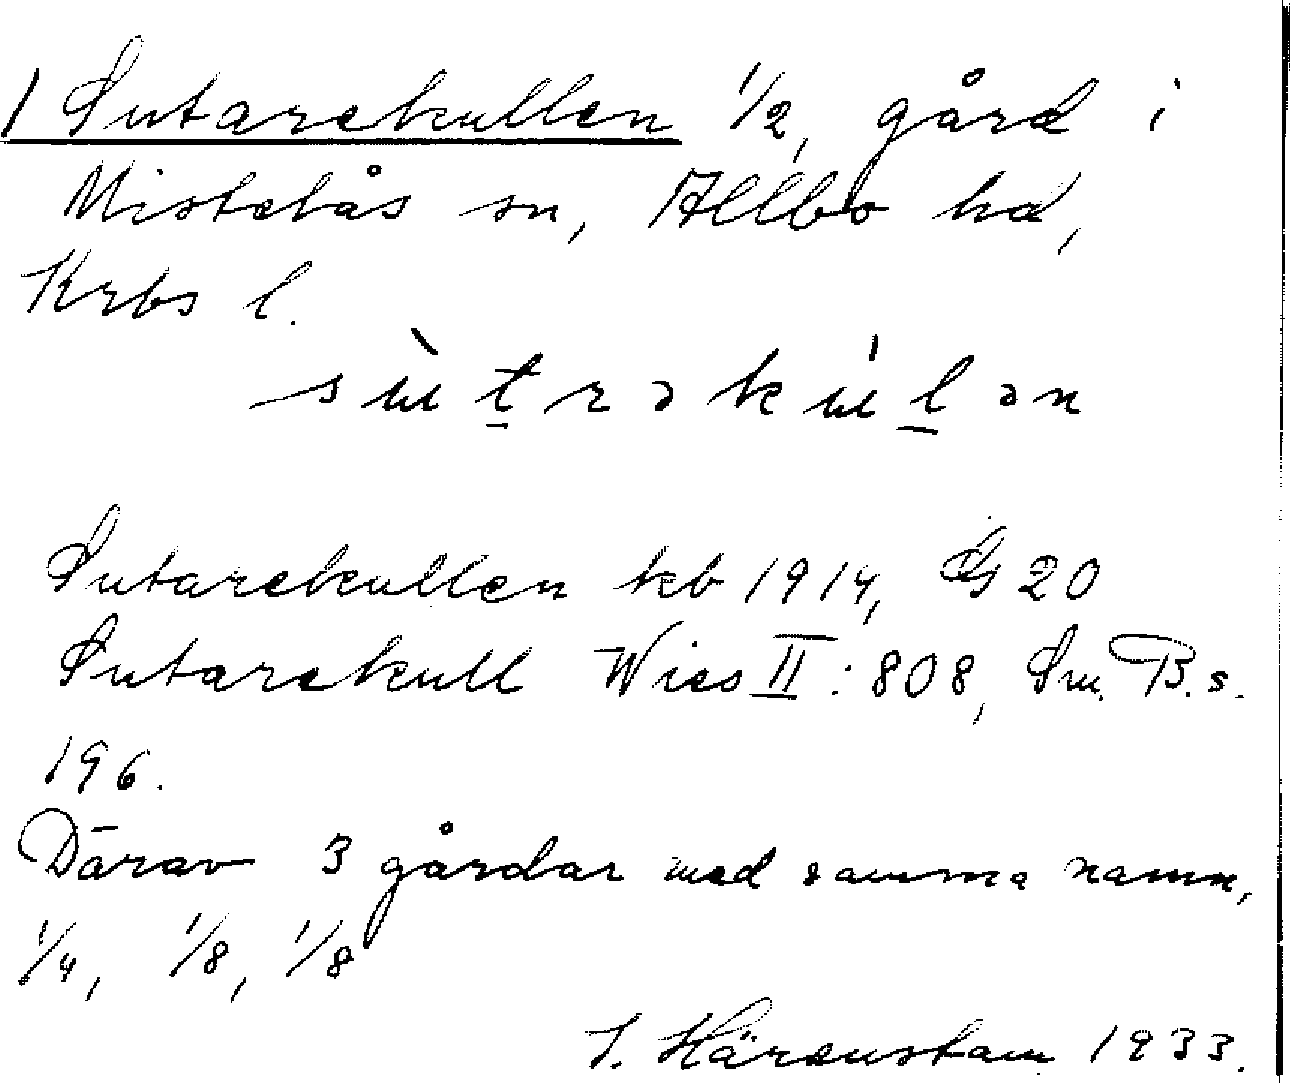 1 Sutarekullen 1/2, gård i
Mistelås sn, Allbo hd,
Krbs l.
sùt̠rəkúl̠ən
Sutarekullen kb 1914, GS 20
Sutarekull Wies II: 808, Sm. B. s.
196.
Därav 3 gårdar med samma namn,
1/4, 1/8, 1/8
J. Härenstam 1933.